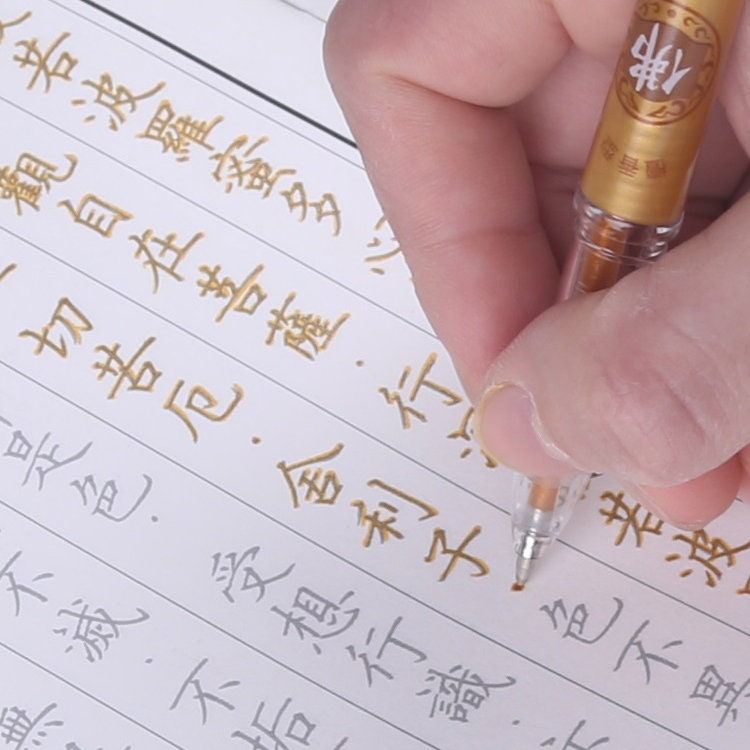 若波羅蜜多心
觀自在菩薩．行 若波
一切苦厄．舍利子．色不異
是色．受想行識．
不滅．不垢
無
佛